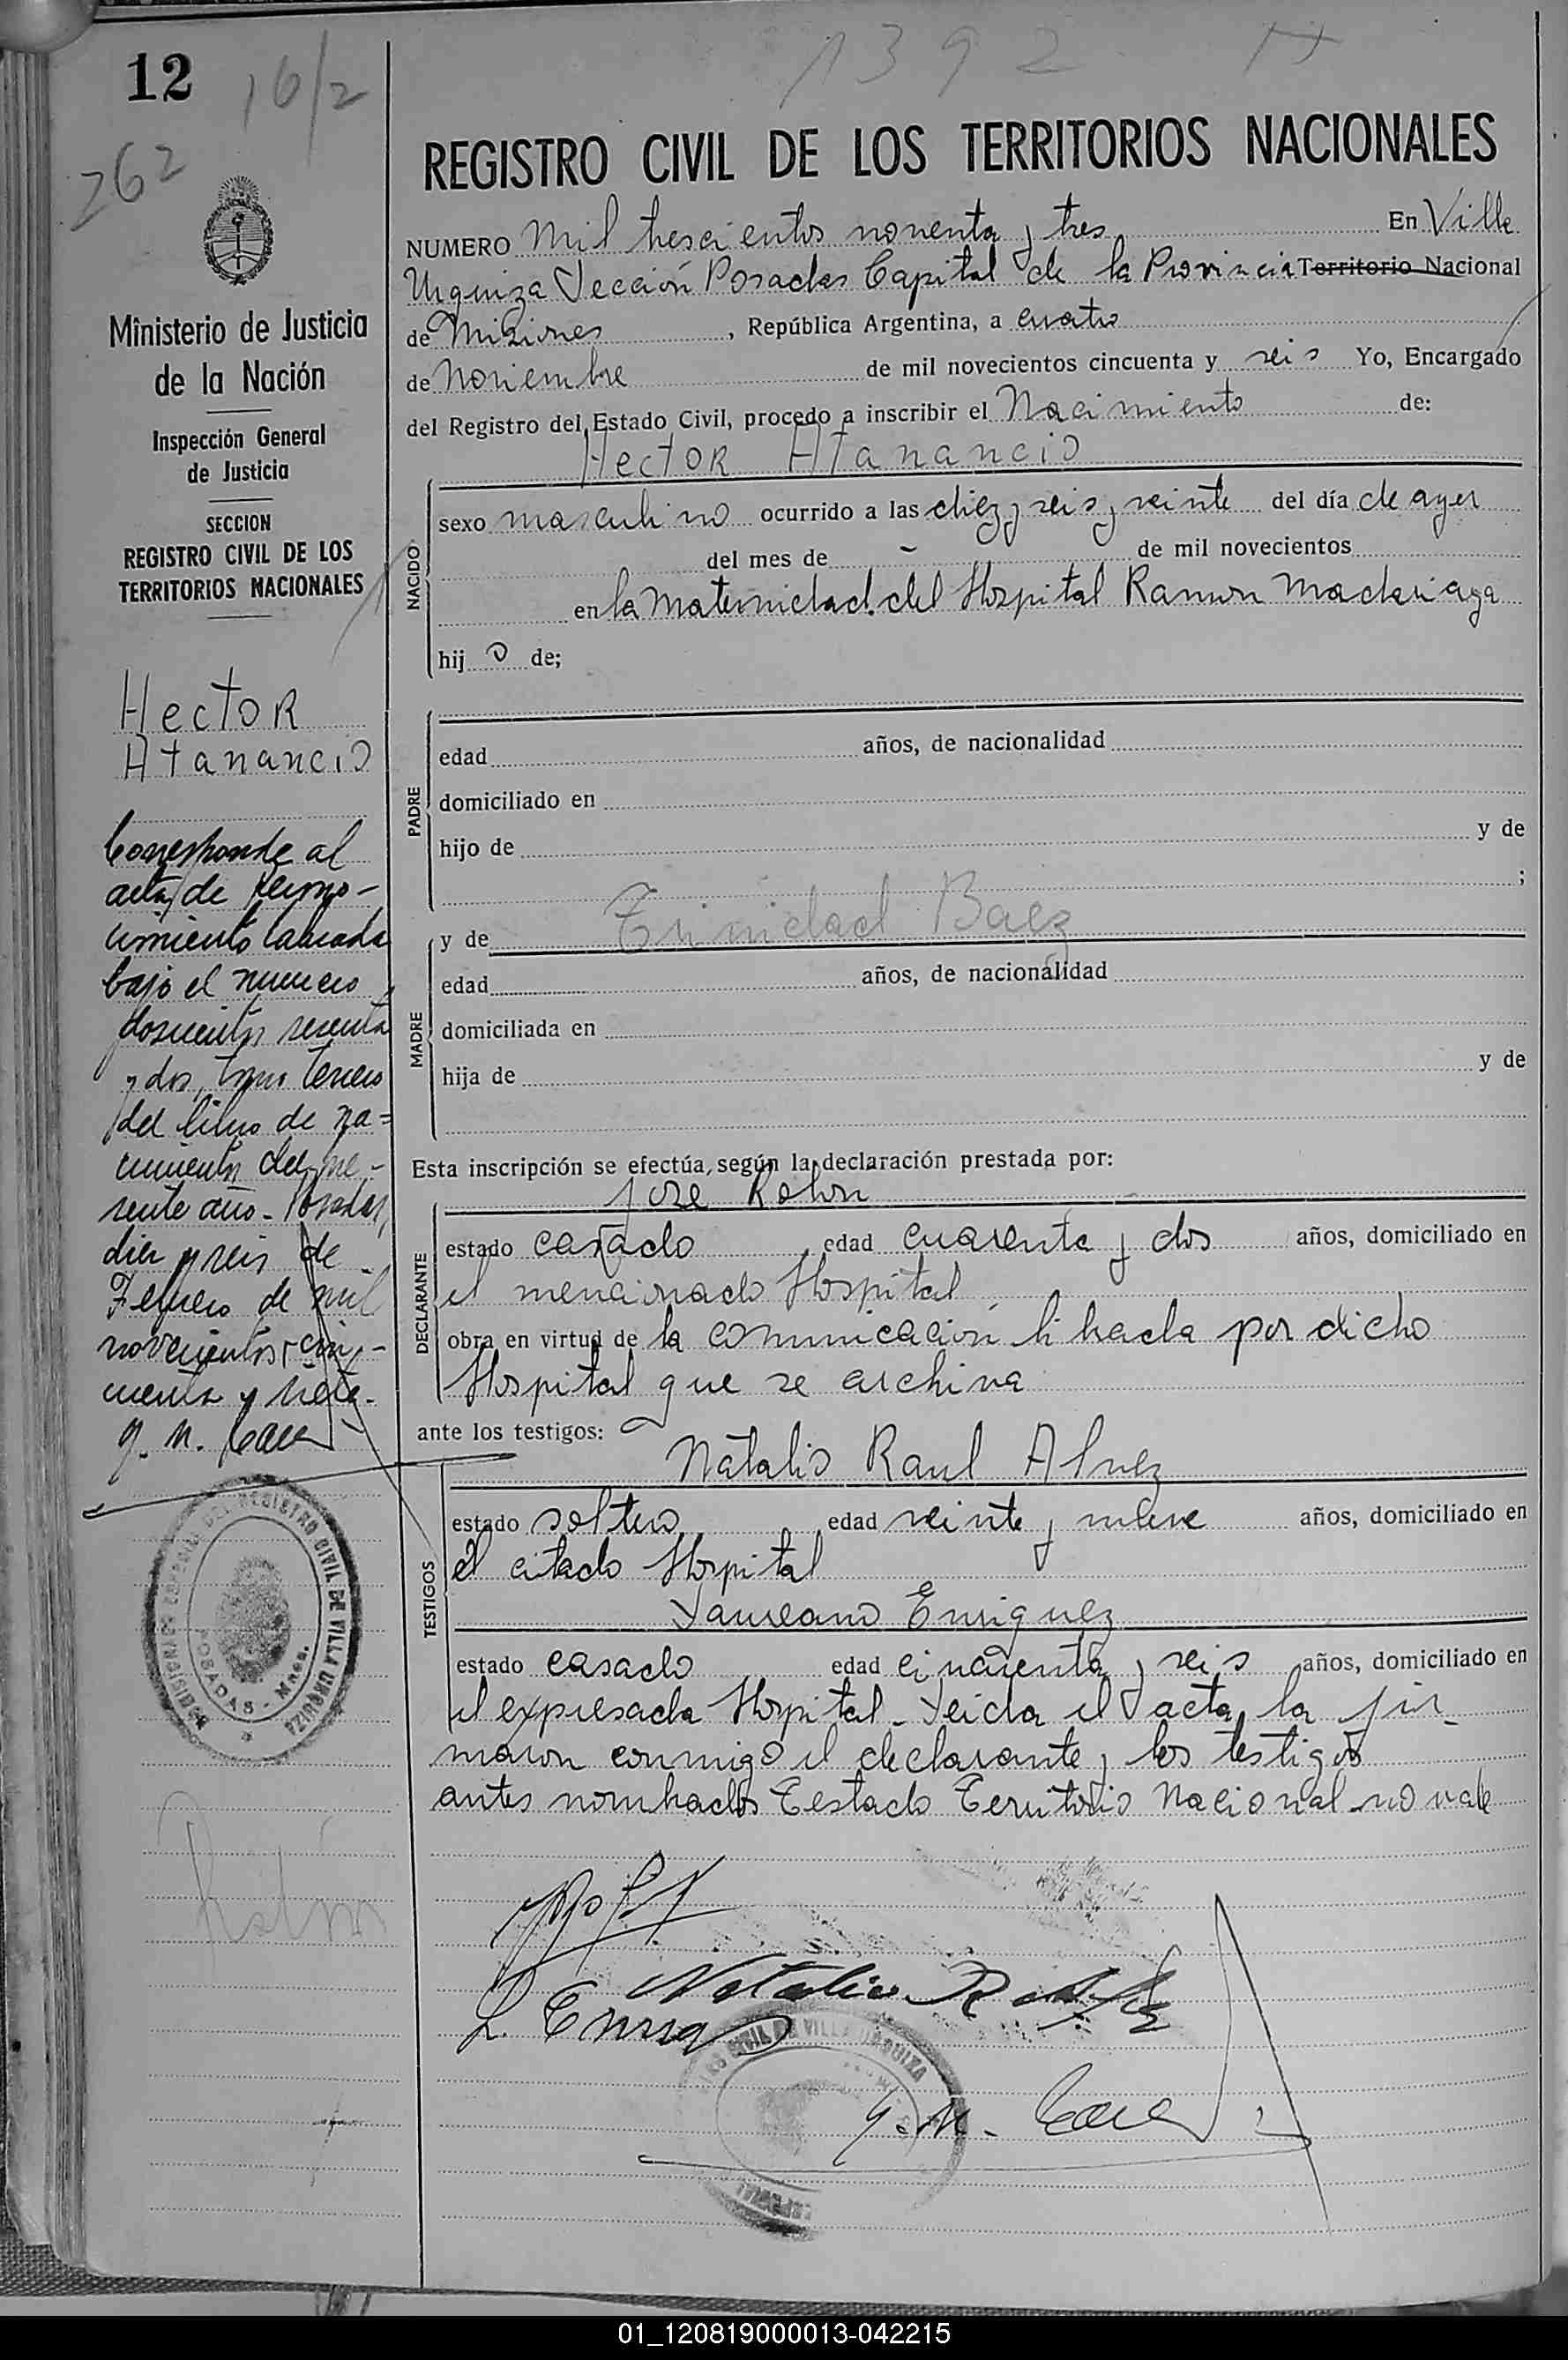 12
16/2
262
1392
REGISTRO CIVIL DE LOS TERRITORIOS NACIONALES
NUMERO Mil trescientos noventa y tres En Villa
Urquiza Sección Posadas Capital de la Provincia Territorio Nacional
de Misiones, República Argentina, a cuatro
de Noviembre de mil novecientos cincuenta y seis Yo, Encargado
del Registro del Estado Civil, procedo a inscribir el Nacimiento de:
Hector Atanancio
NACIDO
sexo masculino ocurrido a las diez y seis y veinte del día de ayer
del mes de - de mil novecientos
en la Maternidad del Hospital Ramon Madariaga
hij o de;
PADRE
edad años, de nacionalidad
domiciliado en
hijo de y de
;
y de Trinidad Baez
MADRE
edad años, de nacionalidad
domiciliada en
hija de y de
Esta inscripción se efectúa, según la declaración prestada por:
Jose Rolon
DECLARANTE
estado casado, edad cuarenta y dos años, domiciliado en
el mencionado Hospital
obra en virtud de la comunicación librada por dicho
Hospital que se archiva
ante los testigos:
Natalio Raul Alvez
TESTIGOS
estado soltero, edad veinte y nueve años, domiciliado en
el citado Hospital
Laureano Enriquez
estado casado edad cincuenta y seis años, domiciliado en
el expresada Hospital - Leida el acta, la fir_
maron conmigo el declarante y los testigos
antes nombrados Testado Territorio Nacional - no vale
Natalio R Alvez
L. Enriq
Ministerio de Justicia
de la Nación
Inspección General
de Justicia
SECCION
REGISTRO CIVIL DE LOS
TERRITORIOS NACIONALES
Hector
Atanancio
Corresponde al
acta de recono-
cimiento labrada
bajo el numero
doscientos sesenta
y dos, tomo tercero
del libro de na=
cimientos del pre-
sente año - Posadas,
diez y seis de
Febrero de mil
novecientos cin-
cuenta y siete.
REGISTRO CIVIL DE VILLA URQUIZA
POSADAS - Mnes.
Rolon
CIVIL DE VILLA URQUIZA
01_120819000013-042215